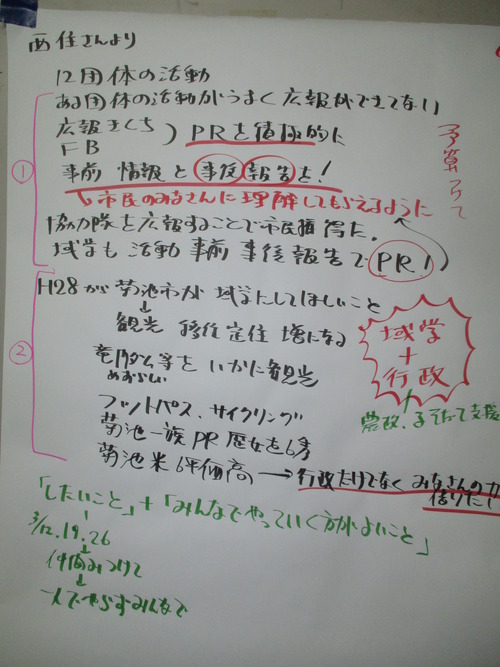 西住さんより
12団体の活動
ある団体の活動がうまく広報ができてない
広報きくち
FB
PRを積極的に
予算つけて
①
事前 情報と 事後 報告を!
市民のみなさんに理解してもらえるように
協力隊を広報することで市民獲得に.
域学も 活動 事前 事後報告で PR!
H28から 菊池市が 域学にしてほしいこと
②
観光 移住定住 増になる
域学
+
行政
竜門ダム等を いかに観光
農政、子育て支援
フットパス、サイクリング
菊池一族 PR 歴女を
菊池米 評価高 → 行政だけでなく みなさんの力
借りたて
「したいこと」+「みんなでやっていく方がよいこと」
3/12.19.26
仲間みつけて
一人でやらずみんなで